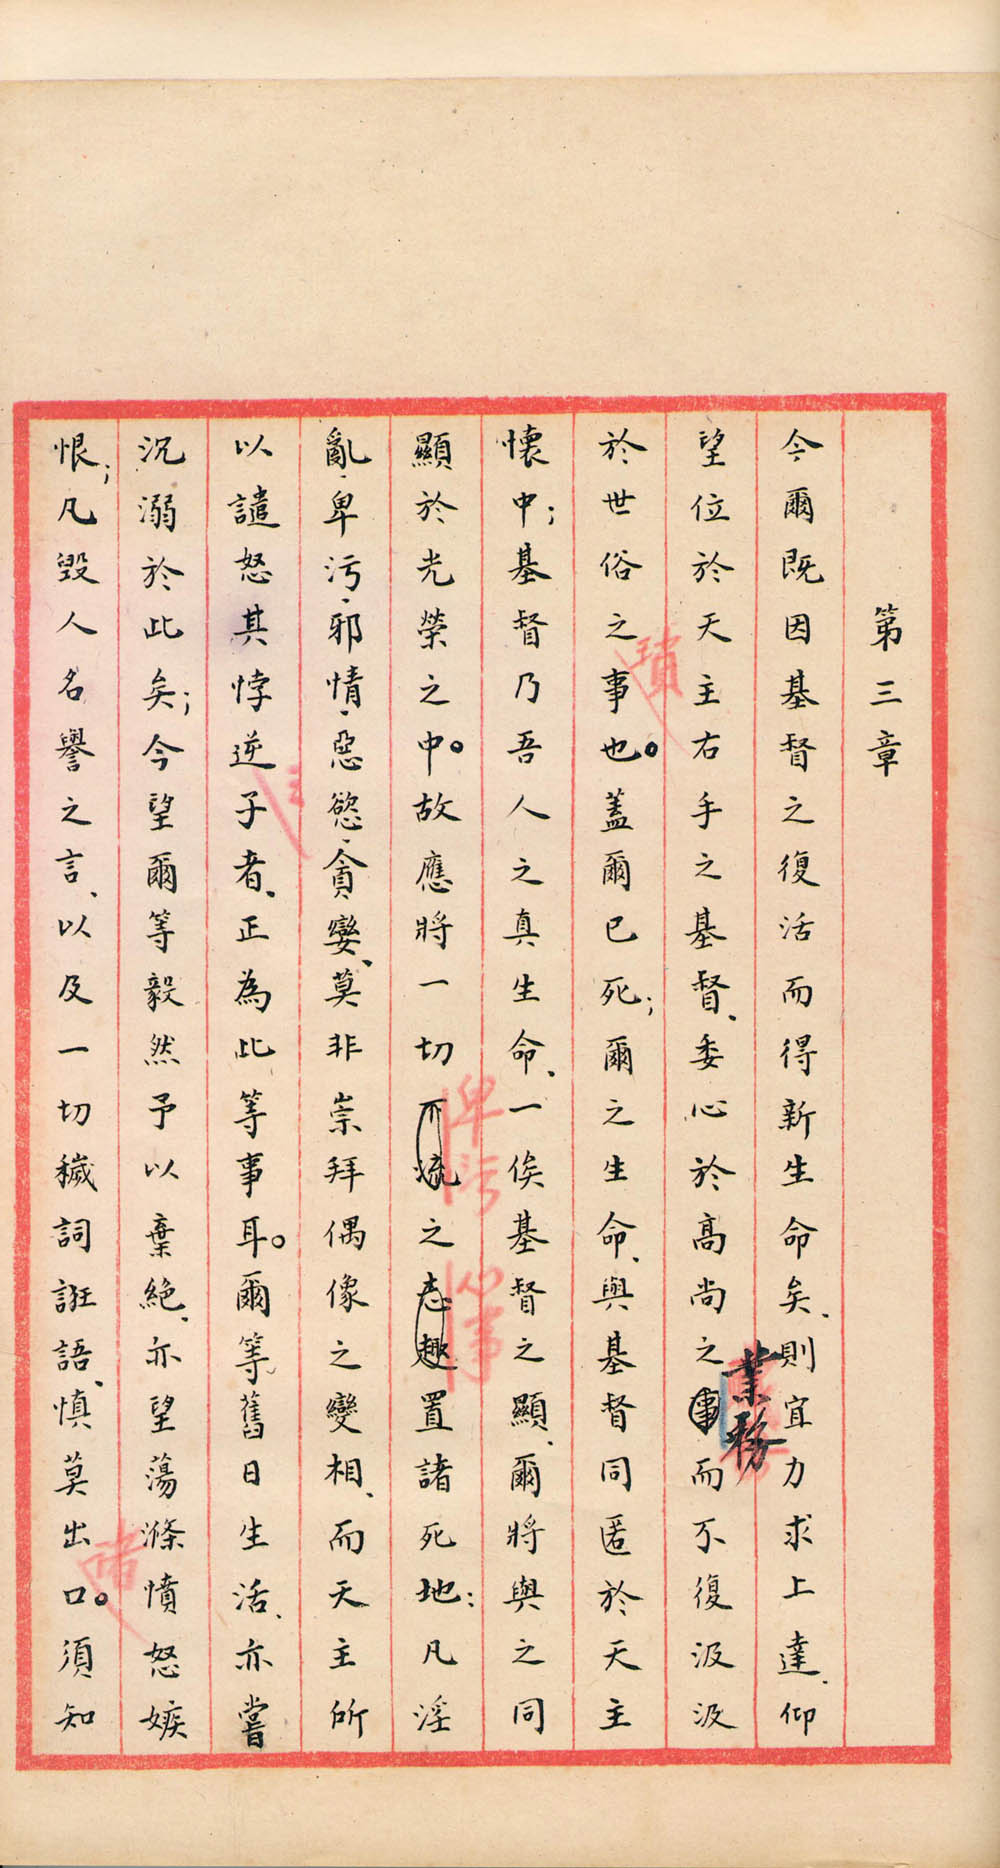 第三章
今爾既因基督之復活而得新生命矣、則宜力求上達、仰
望位於天主右手之基督、委心於高尚之事而不復汲汲
業務
於世俗之事也。蓋爾已死；爾之生命、與基督同匿於天主
瑣
懷中；基督乃吾人之真生命、一俟基督之顯、爾將與之同
顯於光榮之中。故應將一切不
之志趣置諸死地：凡淫
卑污
心事
亂、卑污、邪情、惡慾、貪孌、莫非崇拜偶像之變相、而天主所
以譴怒其悖逆子者、正為此等事耳。爾等舊日生活、亦嘗
之
沉溺於此矣；今望爾等毅然予以棄絕、亦望蕩滌憤怒嫉
恨；凡毀人名譽之言、以及一切穢詞誑語、慎莫出口。須知
諸